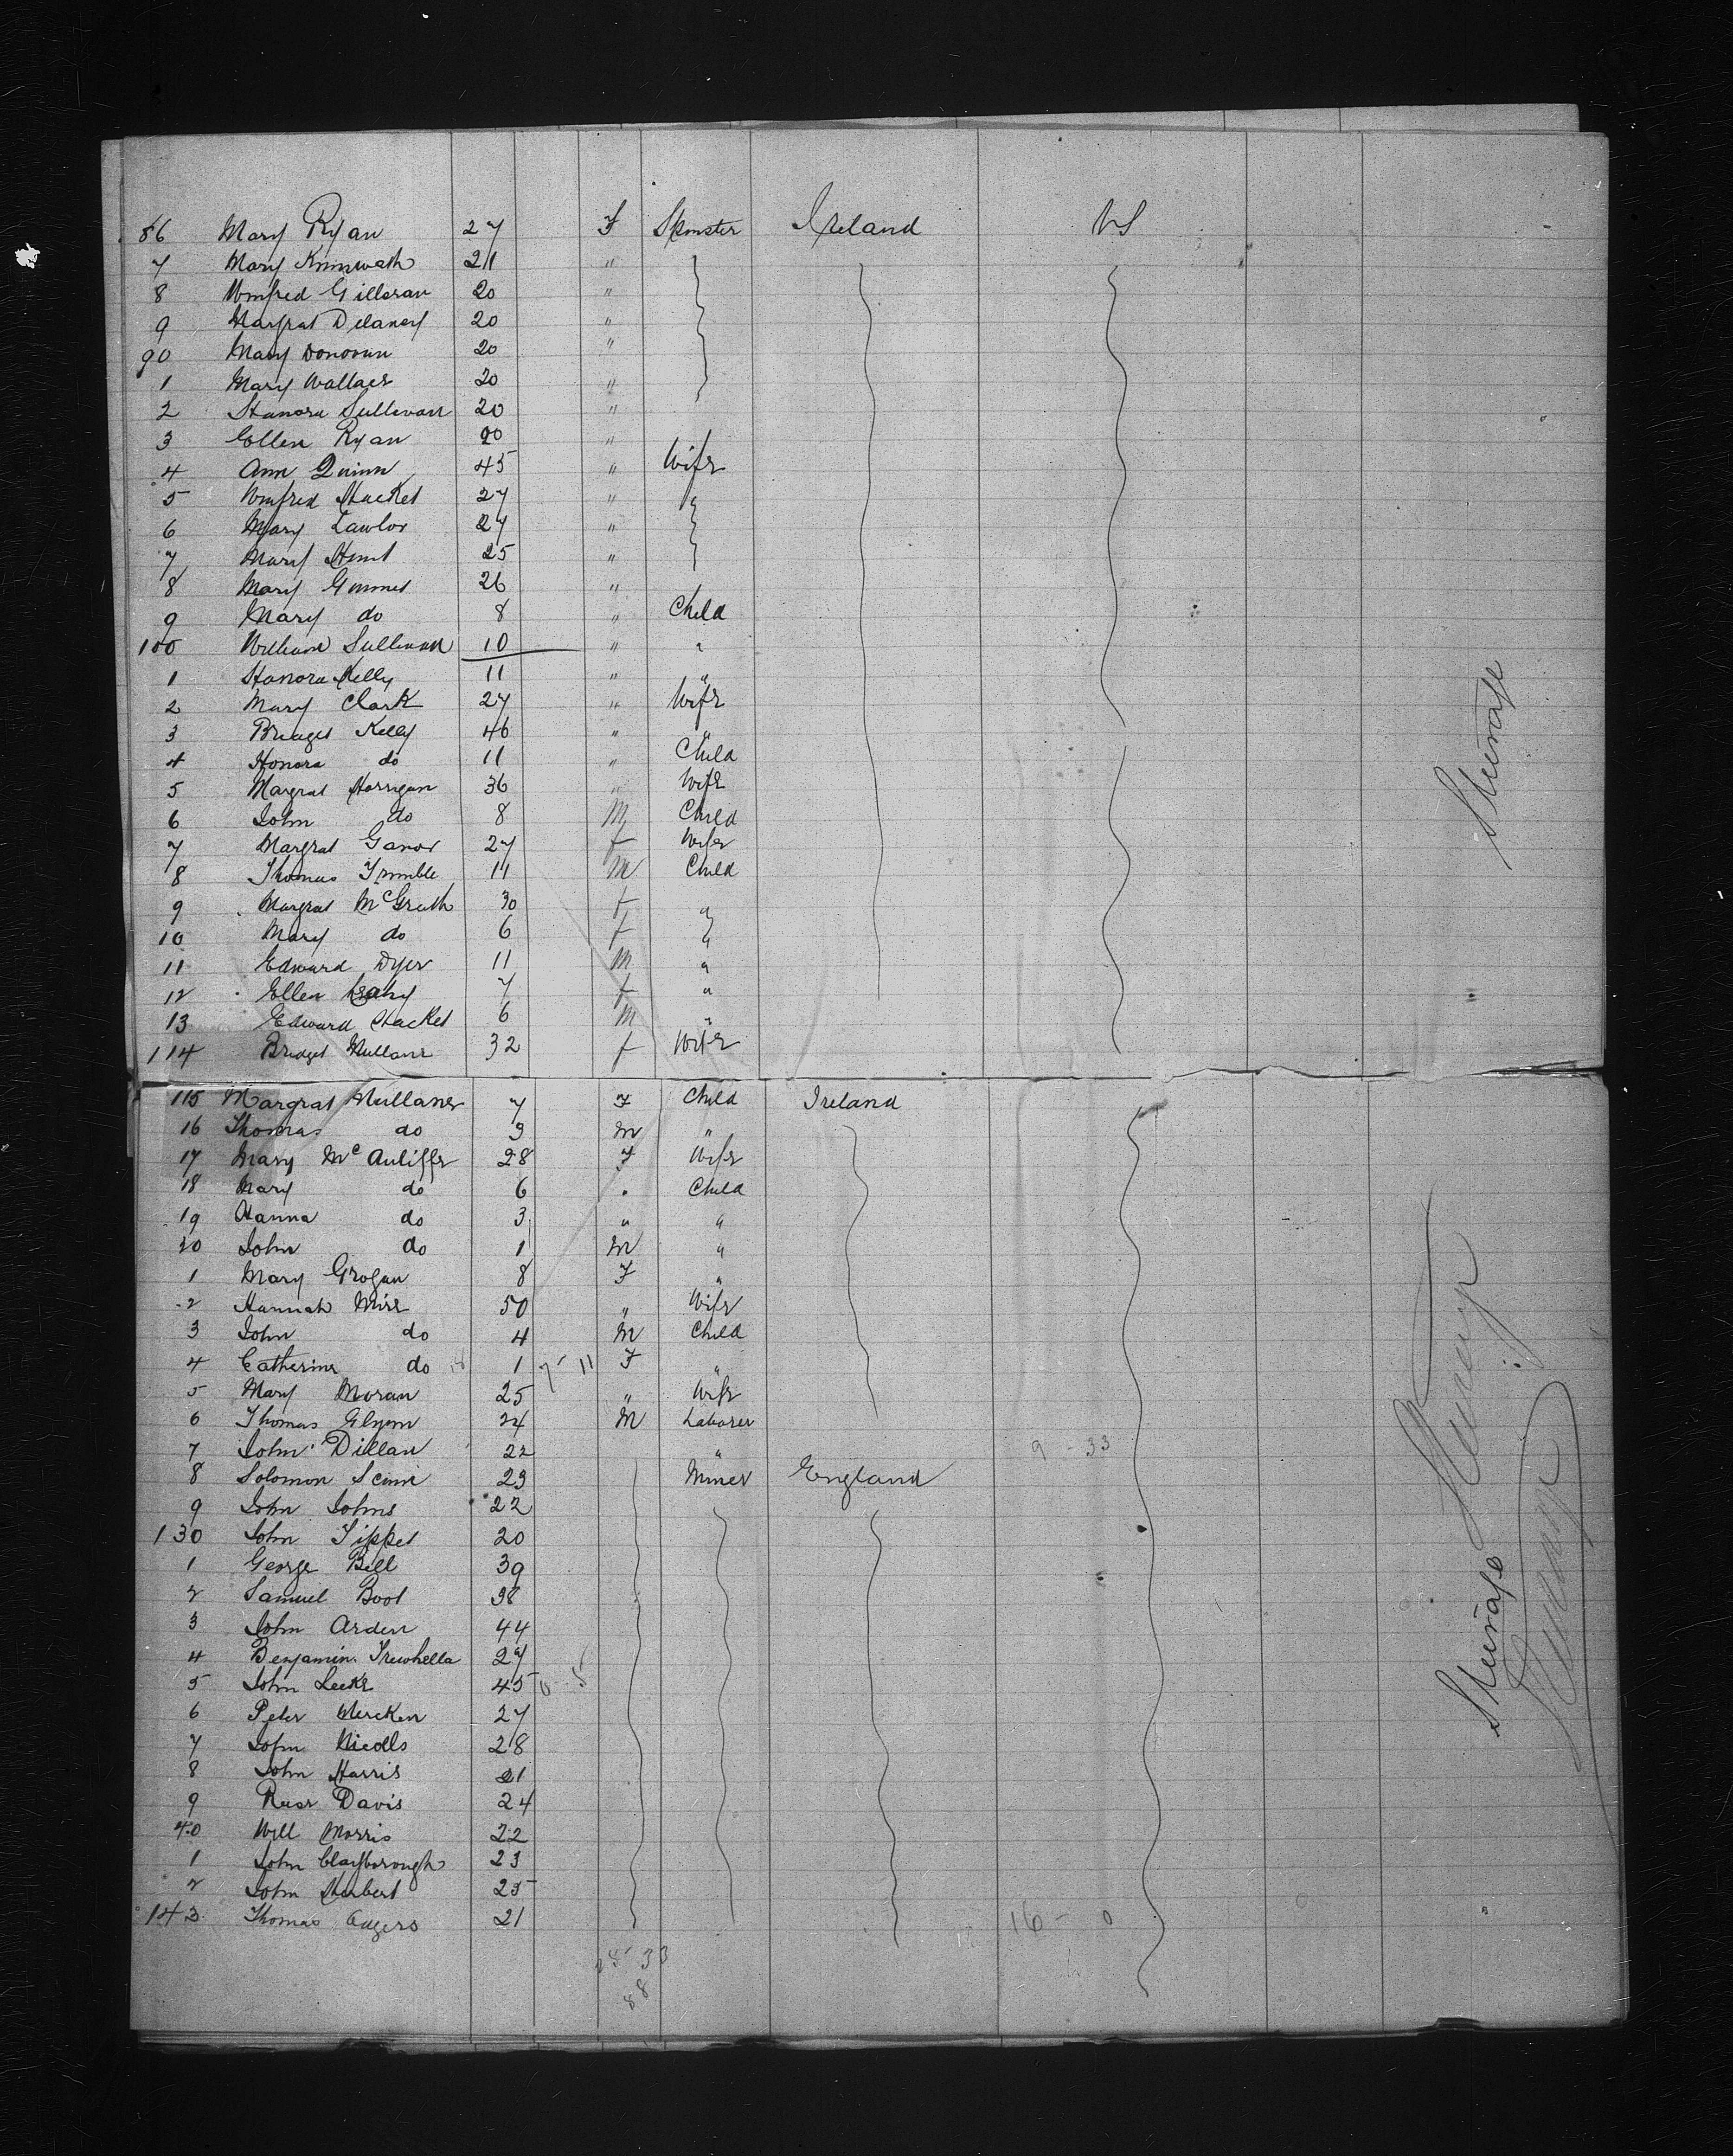 86 Mary Ryan 27 F Spinster Ireland US
7 Mary 21 "
8 Winfred Gilloran 20 "
9 Margrat Delaney 20 "
90 Mary Donovan 20 "
1 Mary Wallace 20 "
2 Hanora Sullivan 20 "
3 Ellen Ryan 20 "
4 Ann Quinn 45 " Wife
5 Winfred Hacket 27 " "
6 Mary Lawlor 27 "
7 Mary Hunt 25 "
8 Mary 26 "
9 Mary do 8 " Child
100 William Sullivan 10 " "
1 Hanora Kelly 11 " "
2 Mary Clark 27 " Wife
3 Bridget Kelly 46 " "
4 Honora do 11 " Child
5 Margrat Horrigan 36 " Wife
6 John do 8 M Child
7 Margrat Ganor 27 F Wife
8 Thomas Trimble 11 M Child
9 Margrat McGrath 30 F "
10 Mary do 6 F "
11 Edward Dyer 11 M "
12 Ellen Leahy 7 F "
13 Edward Hacket 6 M "
114 Bridget Mullane 32 F Wife
Steirage
115 Margrat Mullane 7 F Child Ireland
16 Thomas do 3 M "
17 Mary McAuliffe 28 F Wife
18 Mary do 6 " Child
19 Hanna do 3 " "
20 John do 1 M "
1 Mary Grogan 8 F "
2 Hannah 50 " Wife
3 John do 4 M Child
4 Catherine do 1 7 - 11 F "
5 Mary Moran 25 " Wife
6 Thomas Glynn 24 M Laborer
7 John Dillan 22 " 9 - 33
8 Solomon 23 Miner England
9 John Johns 22
130 John Tippet 20
1 George Bell 39
2 Samuel Boot 38
3 John Arden 44
4 Benjamin Trewhella 27
5 John Leeke 45
6 Peter 27
7 John Nicolls 28
8 John Harris 21
9 Reese Davis 24
40 Will Morris 22
1 John Clayborough 23
2 John Herbert 25
143 Thomas 21 16 - 0
Steirage
25 33
88